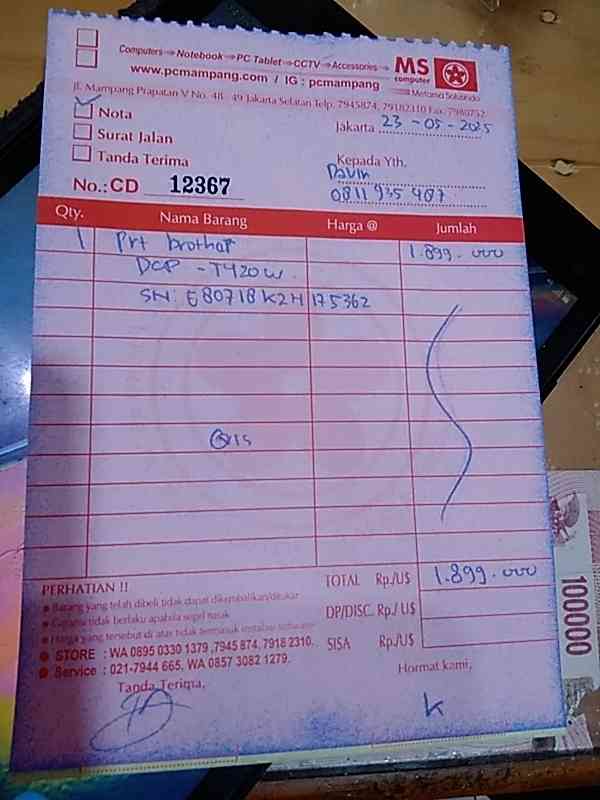 Computers Notebook PC Tablet CCTV Accessories
MS
computer
www.pcmampang.com / IG : pcmampang
Metama Solusindo
Jl. Mampang Prapatan V No. 48 - 49 Jakarta Selatan Telp. 7945874, 79182310 Fax. 7980752
Nota
Jakarta 23 - 05 - 2025
Surat Jalan
Tanda Terima
Kepada Yth.
Davin
No.: CD 12367
0811 935 487
Qty. Nama Barang Harga @ Jumlah
1 Prt brother 1.899.000
DCP - T420w
SN: E80718K2H175362
Qris
TOTAL Rp./U$ 1.899.000
PERHATIAN !!
Barang yang telah dibeli tidak dapat dikembalikan/ditukar
DP/DISC. Rp./U$
Garansi tidak berlaku apabila segel rusak
Harga yang tersebut di atas tidak termasuk instalasi software
SISA Rp./U$
STORE : WA 0895 0330 1379 ,7945 874, 7918 2310.
Service : 021-7944 665, WA 0857 3082 1279.
Hormat kami,
Tanda Terima,
100000